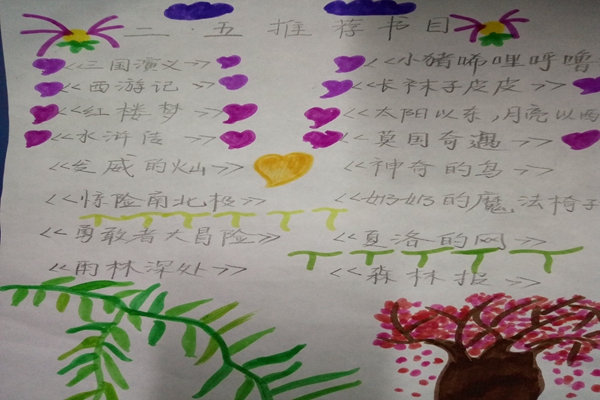 二·五推荐书目
<<三国演义>>
<<小猪唏哩呼噜
<<西游记>>
<<长袜子皮皮>>
<<红楼梦>>
<<太阳以东,月亮以西
<<水浒传>>
<<莫国奇遇>>
<<发威的火山>>
<<神奇的鸟>>
<<惊险南北极>>
<<奶奶的魔法椅子
<<勇敢者大冒险>>
<<夏洛的网>>
<<雨林深处>>
<<森林报>>